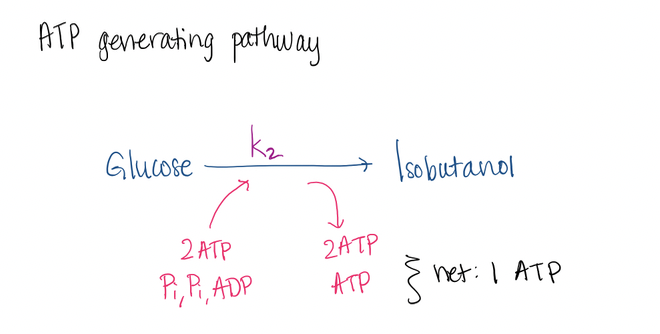 ATP generating pathway
k2
Glucose → Isobutanol
2ATP 2ATP
Pi, Pi, ADP ATP } net: 1 ATP